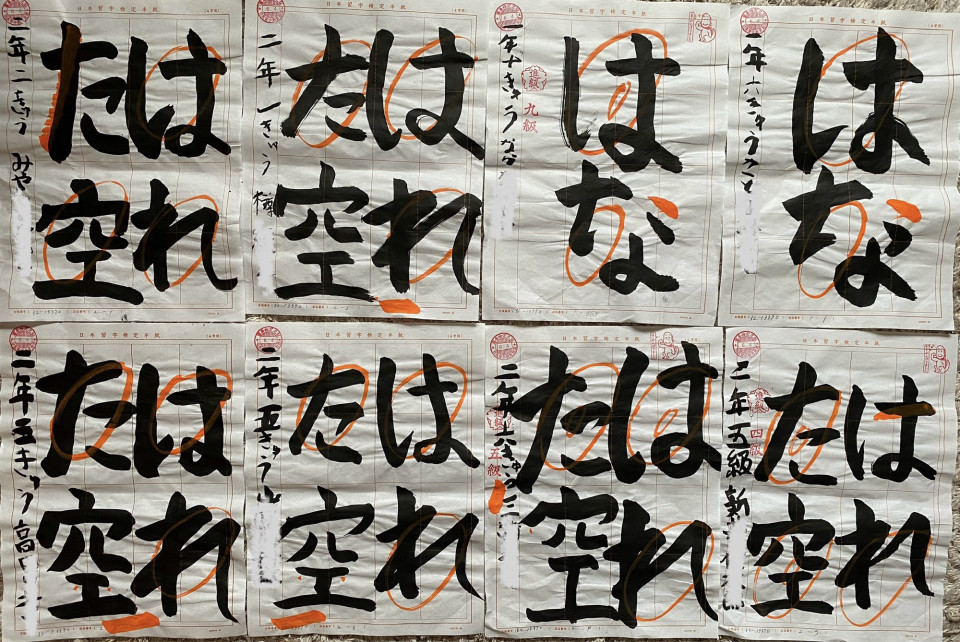 日本習字検定半紙
はれ
た空
二年二きゅう みや
日本習字検定半紙
はれ
た空
二年一きゅう 樽
日本習字検定半紙
はな
進級 九級
一年十きゅう
日本習字検定半紙
はな
年六きゅう
日本習字検定半紙
はれ
た空
二年三きゅう 高
日本習字検定半紙
はれ
た空
二年 きゅう 山
日本習字検定半紙
はれ
た空
進級 五級
二年六きゅう
日本習字検定半紙
はれ
た空
進級 四級
二年五級 新